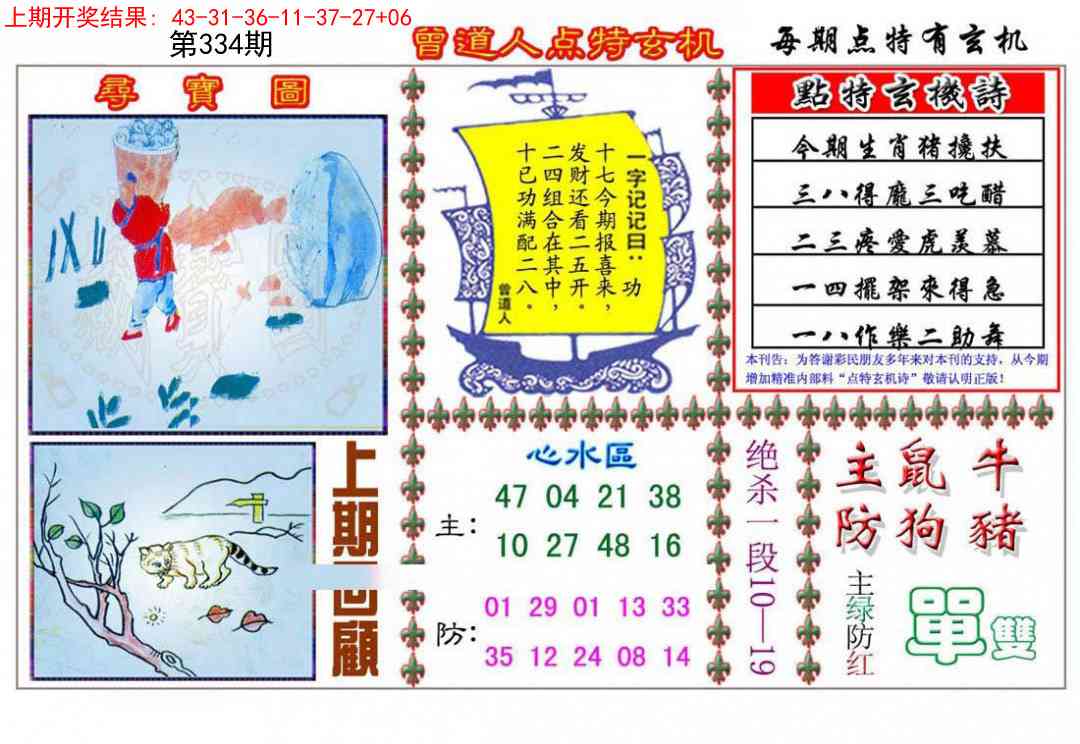 上期开奖结果：43-31-36-11-37-27+06
第334期
曾道人点特玄机
每期点特有玄机
尋寶圖
一字记记曰：功
十七今期报喜来，
发财还看二五开。
二四组合在其中，
十已功满配二八。
曾道人
點特玄機詩
今期生肖猪攙扶
三八得龐三吃醋
二三疼愛虎羨慕
一四擺架來得急
一八作樂二助舞
本刊告：为答谢彩民朋友多年来对本刊的支持，从今期
增加精准内部料“点特玄机诗”敬请认明正版！
上期回顧
心水區
主：
47 04 21 38
10 27 48 16
防：
01 29 01 13 33
35 12 24 08 14
绝杀一段10—19
主鼠牛
防狗豬
主绿防红
單雙